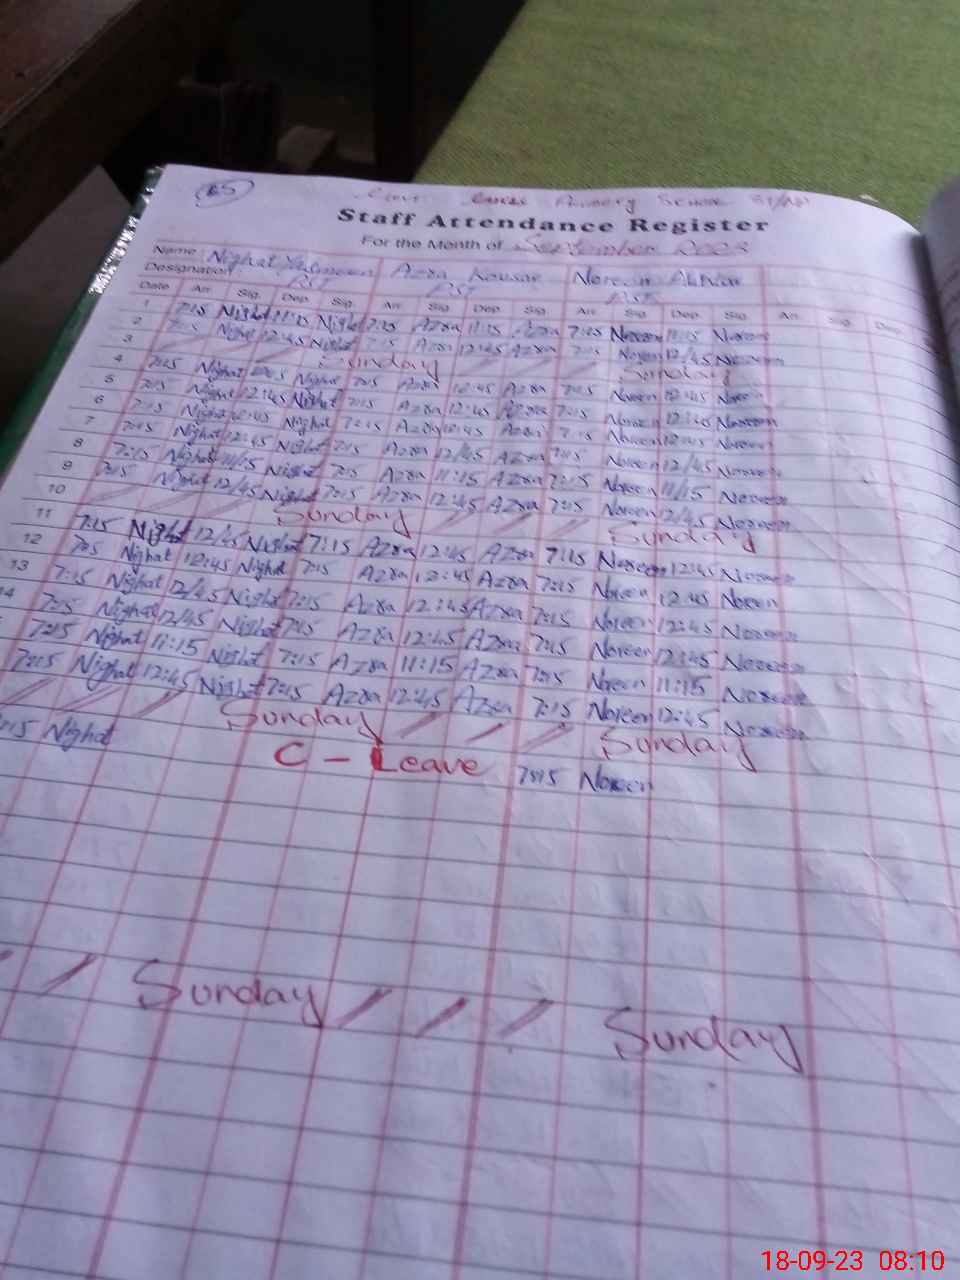 65
Primary School
Staff Attendance Register
For the Month of September 2023
Name: Nighat Yasmeen Azra Kousar Noreen Akhtar
Designation: PST PST PST
Date Arr Sig. Dep Sig. Arr Sig Dep Sig. Arr Sig Dep Sig. Arr Sig. Dep
1 7:15 Nighat 11:15 Nighat 7:15 Azra 11:15 Azra 7:15 Noreen 11:15 Noreen
2 7:15 Nighat 12:45 Nighat 7:15 Azra 12:45 Azra 7:15 Noreen 12/45 Noreen
3 Sunday Sunday
4 7:15 Nighat 12:45 Nighat 7:15 Azra 12:45 Azra 7:15 Noreen 12:45 Noreen
5 7:15 Nighat 12:45 Nighat 7:15 Azra 12:45 Azra 7:15 Noreen 12:45 Noreen
6 7:15 Nighat 12:45 Nighat 7:15 Azra 12:45 Azra 7:15 Noreen 12:45 Noreen
7 7:15 Nighat 12:45 Nighat 7:15 Azra 12/45 Azra 7:15 Noreen 12/45 Noreen
8 7:15 Nighat 11/15 Nighat 7:15 Azra 11:15 Azra 7:15 Noreen 11/15 Noreen
9 7:15 Nighat 12/45 Nighat 7:15 Azra 12:45 Azra 7:15 Noreen 12/45 Noreen
10 Sunday Sunday
11 7:15 Nighat 12/45 Nighat 7:15 Azra 12:45 Azra 7:15 Noreen 12:45 Noreen
12 7:15 Nighat 12:45 Nighat 7:15 Azra 12:45 Azra 7:15 Noreen 12:45 Noreen
13 7:15 Nighat 12/45 Nighat 7:15 Azra 12:45 Azra 7:15 Noreen 12:45 Noreen
14 7:15 Nighat 12/45 Nighat 7:15 Azra 12:45 Azra 7:15 Noreen 12:45 Noreen
7:15 Nighat 11:15 Nighat 7:15 Azra 11:15 Azra 7:15 Noreen 11:15 Noreen
7:15 Nighat 12:45 Nighat 7:15 Azra 12:45 Azra 7:15 Noreen 12:45 Noreen
Sunday Sunday
7:15 Nighat C - Leave 7:15 Noreen
Sunday Sunday
18-09-23 08:10